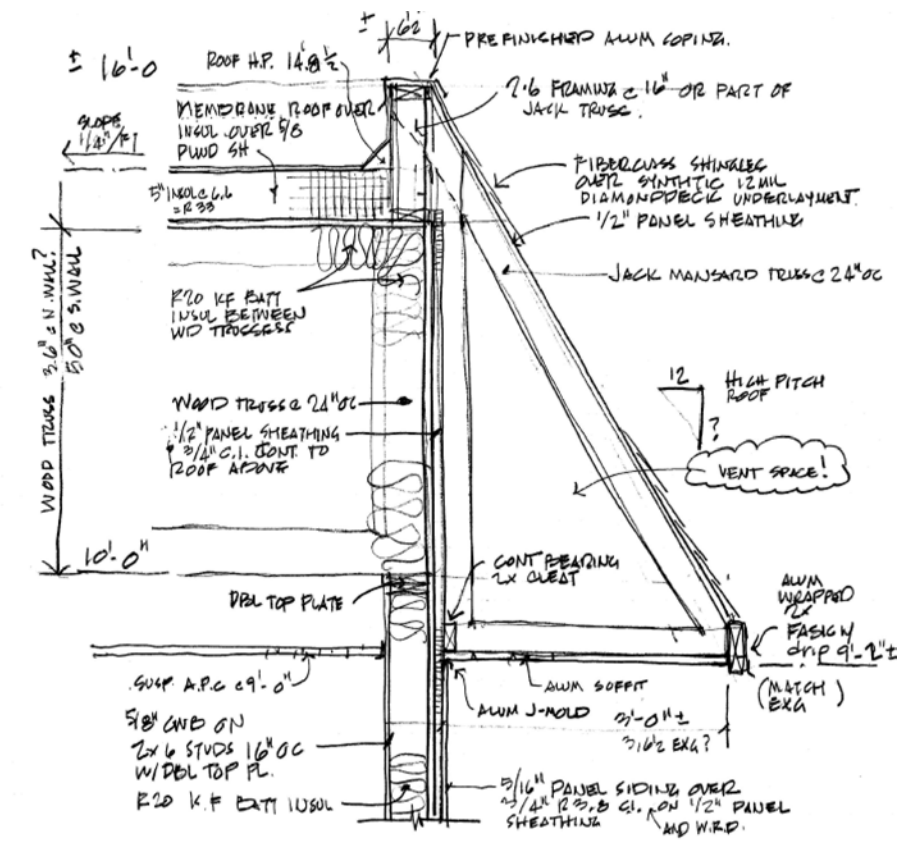 ± 6½
PREFINISHED ALUM COPING.
± 16'-0
ROOF H.P. 14'.8½"
2·6 FRAMING @ 16" OR PART OF
JACK TRUSS.
MEMBRONE ROOF OVER
INSUL OVER 5/8
PLWD SH
SLOPE
1/4"/FT
FIBERGLASS SHINGLES
OVER SYNTHTIC 12 MIL
DIAMONDDECK UNDERLAYMENT
1/2" PANEL SHEATHING
5" INSUL @ 6.6
= R 33
JACK MANSARD TRUSS @ 24" OC
R20 KF BATT
INSUL BETWEEN
WD TRUSSESS
WOOD TRUSS 3'.6" @ N. WALL?
50" @ S. WALL
12
?
HIGH PITCH
ROOF
WOOD TRUSS @ 24" OC
1/2" PANEL SHEATHING
3/4" C.I. CONT TO
ROOF ABOVE
VENT SPACE!
10'-0"
CONT BEARING
2x CLEAT
DBL TOP PLATE
ALUM
WRAPPED
2x
FASIG W/
drip 9'-2"±
(MATCH)
EXG
SUSP. A.P.C @ 9'-0"
ALUM SOFFIT
ALUM J-MOLD
3'-0"±
3'.6½ EXG?
5/8" GWB ON
2x6 STUDS 16" OC
W/DBL TOP PL.
R20 K.F BATT INSUL
5/16" PANEL SIDING OVER
3/4" R 3.8 C.I. ON 1/2" PANEL
SHEATHING
AND W.R.B.